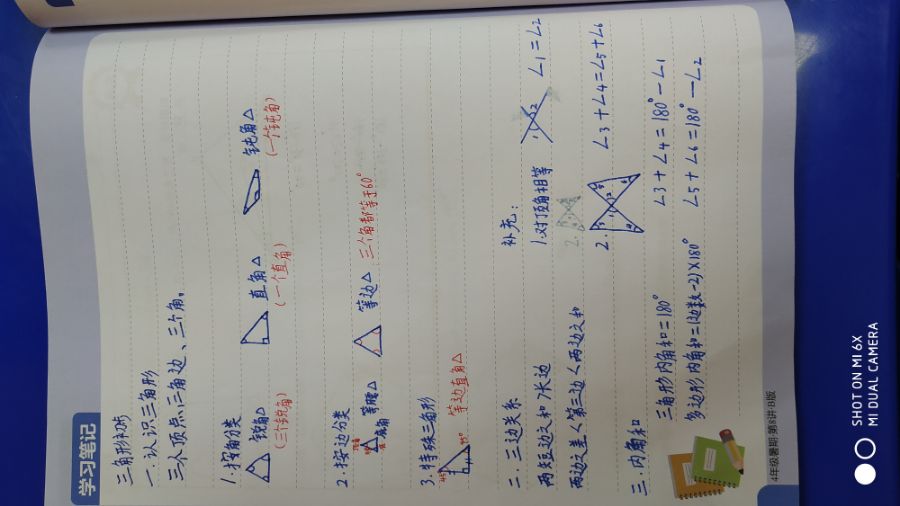 学习笔记
三角形初步
一.认识三角形
三个顶点、三角边、三个角。
1.按角分类
锐角△ 直角△ 钝角△
(三个锐角) (一个直角) (一个钝角)
2.按边分类
顶角 腰 腰 底 底角 等腰△ 等边△ 三个角都等于60°
3.特殊三角形
45° 45° 等边直角△
二.三边关系
两短边之和>长边
两边之差<第三边<两边之和
三.内角和
三角形内角和=180°
多边形内角和=(边数-2)×180°
补充:
1.对顶角相等 1 2 ∠1=∠2
2.
2. ∠3+∠4=∠5+∠6
∠3+∠4=180°-∠1
∠5+∠6=180°-∠2
4年级暑期·第8讲·B版
SHOT ON MI 6X
MI DUAL CAMERA